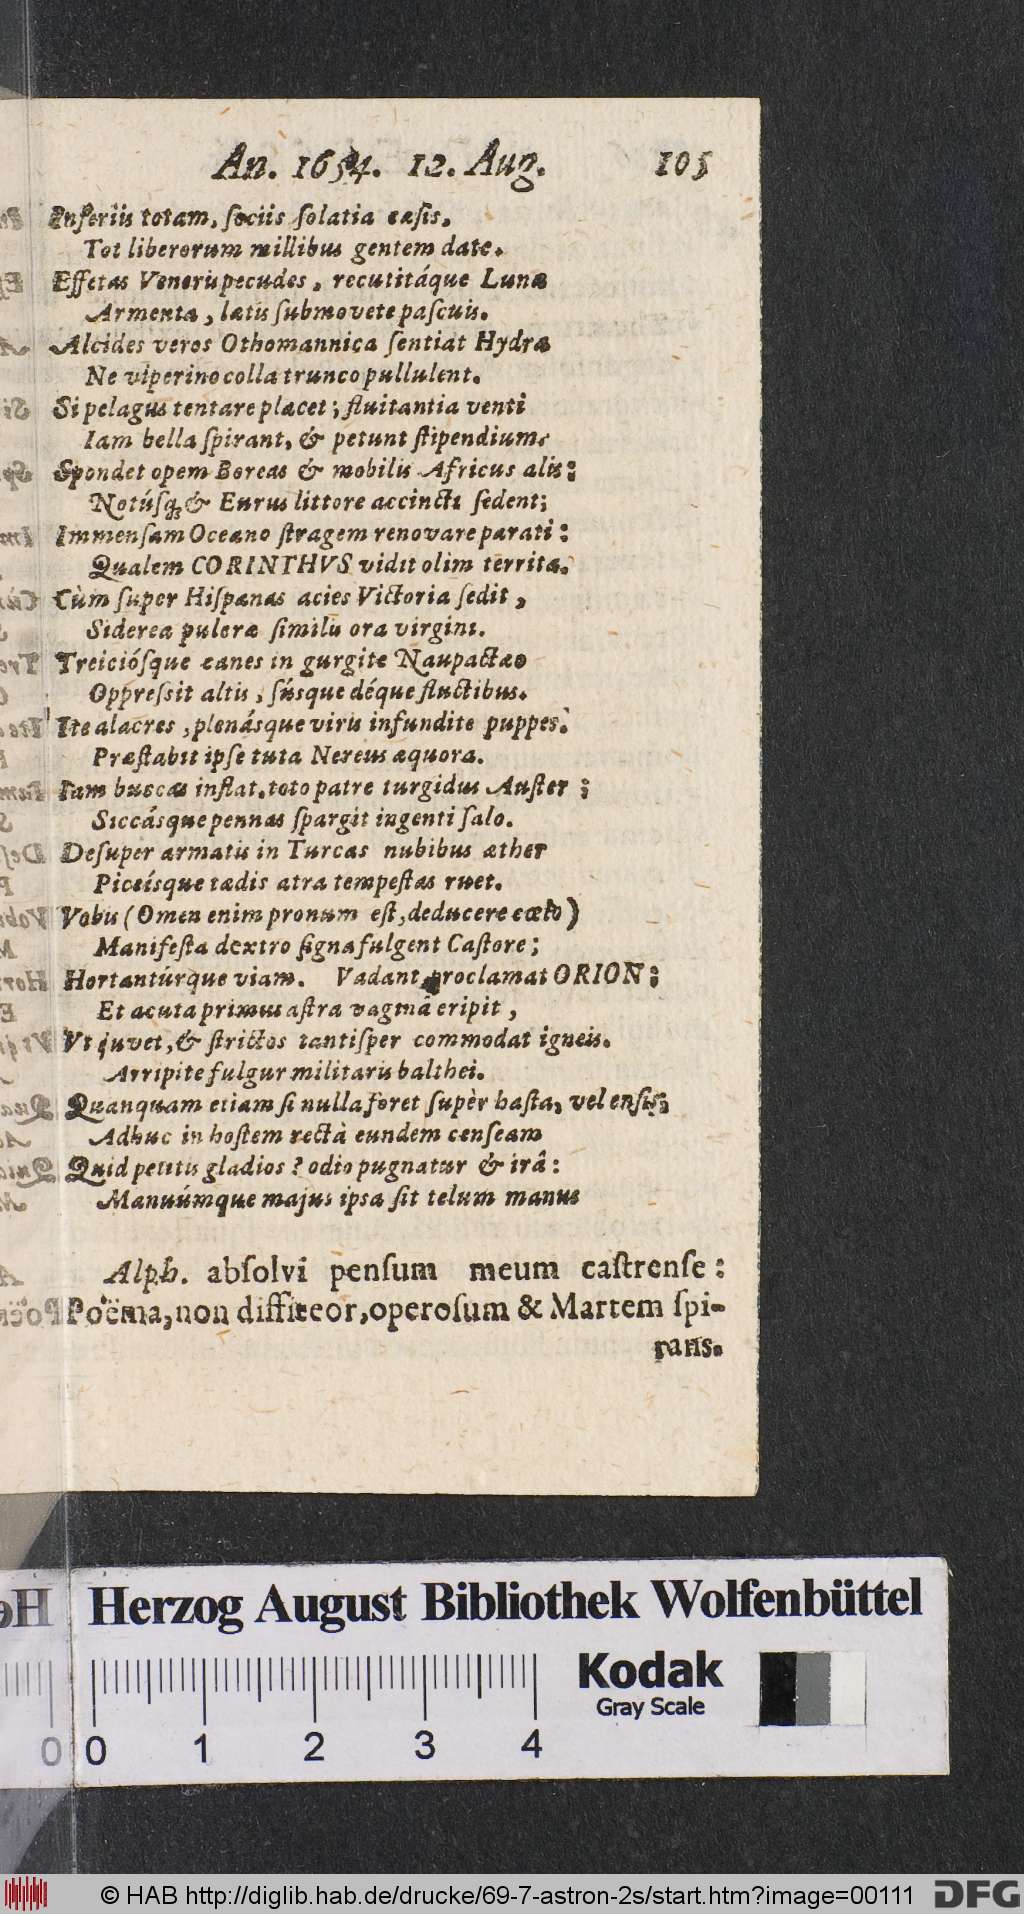 An. 1654. 12. Aug. 105
Inferiis totam, ſociis ſolatia cæſis,
Tot liberorum millibus gentem date.
Effetas Veneris pecudes, recutitáque Lunæ
Armenta, lætis ſubmovete paſcuis.
Alcides veros Othomannica ſentiat Hydra
Ne viperino colla trunco pullulent.
Si pelagus tentare placet; fluitantia venti
Iam bella ſpirant, & petunt ſtipendium.
Spondet opem Boreas & mobilis Africus alis:
Notúſq; & Eurus littore accincti ſedent;
Immenſam Oceano ſtragem renovare parati:
Qualem CORINTHVS vidit olim territa.
Cùm ſuper Hiſpanas acies Victoria ſedit,
Siderea pulcræ ſimilis ora virgini.
Treiciósque canes in gurgite Naupactæo
Oppreſsit altis, ſúsque déque fluctibus.
Ite alacres, plenásque viris infundite puppes.
Præſtabit ipſe tuta Nereus æquora.
Iam buccas inflat, toto patre turgidus Auſter;
Siccásque pennas ſpargit ingenti ſalo.
Deſuper armatis in Turcas nubibus æther
Piceísque tædis atra tempeſtas ruet.
Vobis (Omen enim pronum eſt, deducere cœlo)
Manifeſta dextro ſigna fulgent Caſtore;
Hortantúrque viam. Vadant, proclamat ORION;
Et acuta primus aſtra vaginâ eripit,
Vt juvet, & ſtrictos tantiſper commodat igneis.
Arripite fulgur militaris balthei.
Quanquam etiam ſi nulla foret ſupèr haſta, vel enſis;
Adhuc in hoſtem rectà eundem cenſeam
Quid petitis gladios? odio pugnatur & irâ:
Manuúmque majus ipsa ſit telum manus
Alph. abſolvi penſum meum caſtrenſe:
Poëma, non diffiteor, operoſum & Martem ſpi-
rans.
Herzog August Bibliothek Wolfenbüttel
Kodak
Gray Scale
0 0 1 2 3 4
© HAB http://diglib.hab.de/drucke/69-7-astron-2s/start.htm?image=00111
DFG